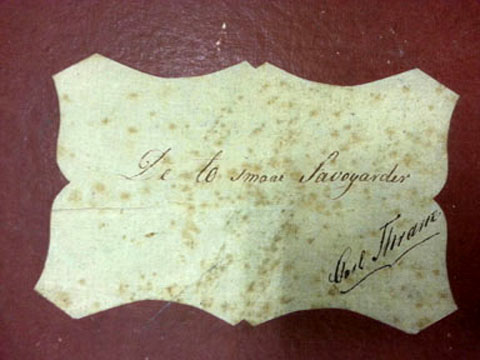 De to smaae Savoyarder
Carl Thrane